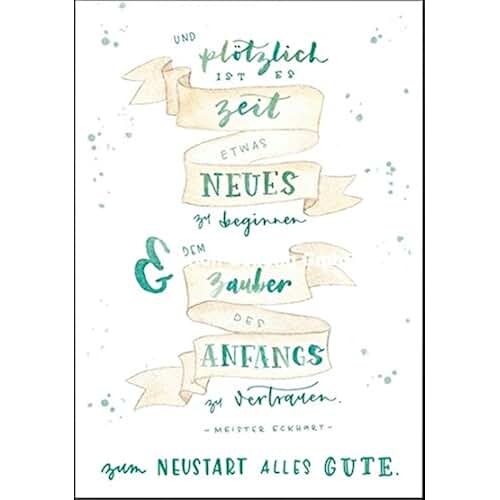 UND
plötzlich
IST ES
zeit
ETWAS
NEUES
zu beginnen
& DEM
Zauber
DES
ANFANGS
zu vertrauen.
- MEISTER ECKHART -
zum NEUSTART ALLES GUTE.